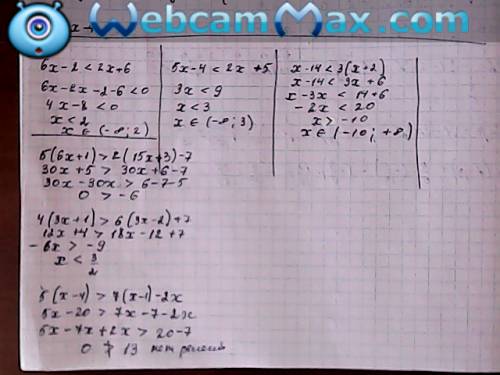 WebcamMax.com
x-
6x-2<2x+6
6x-2x-2-6<0
4x-8<0
x<2
x ∈ (-∞; 2)
5x-4<2x+5
3x<9
x<3
x ∈ (-∞; 3)
x-14<3(x+2)
x-14<3x+6
x-3x<14+6
-2x<20
x>-10
x ∈ (-10; +∞)
5(6x+1)>2(15x+3)-7
30x+5>30x+6-7
30x-30x>6-7-5
0>-6
4(3x+1)>6(3x-2)+7
12x+4>18x-12+7
-6x>-9
x<3/2
5(x-4)>7(x-1)-2x
5x-20>7x-7-2x
5x-7x+2x>20-7
0≯13 нет решень